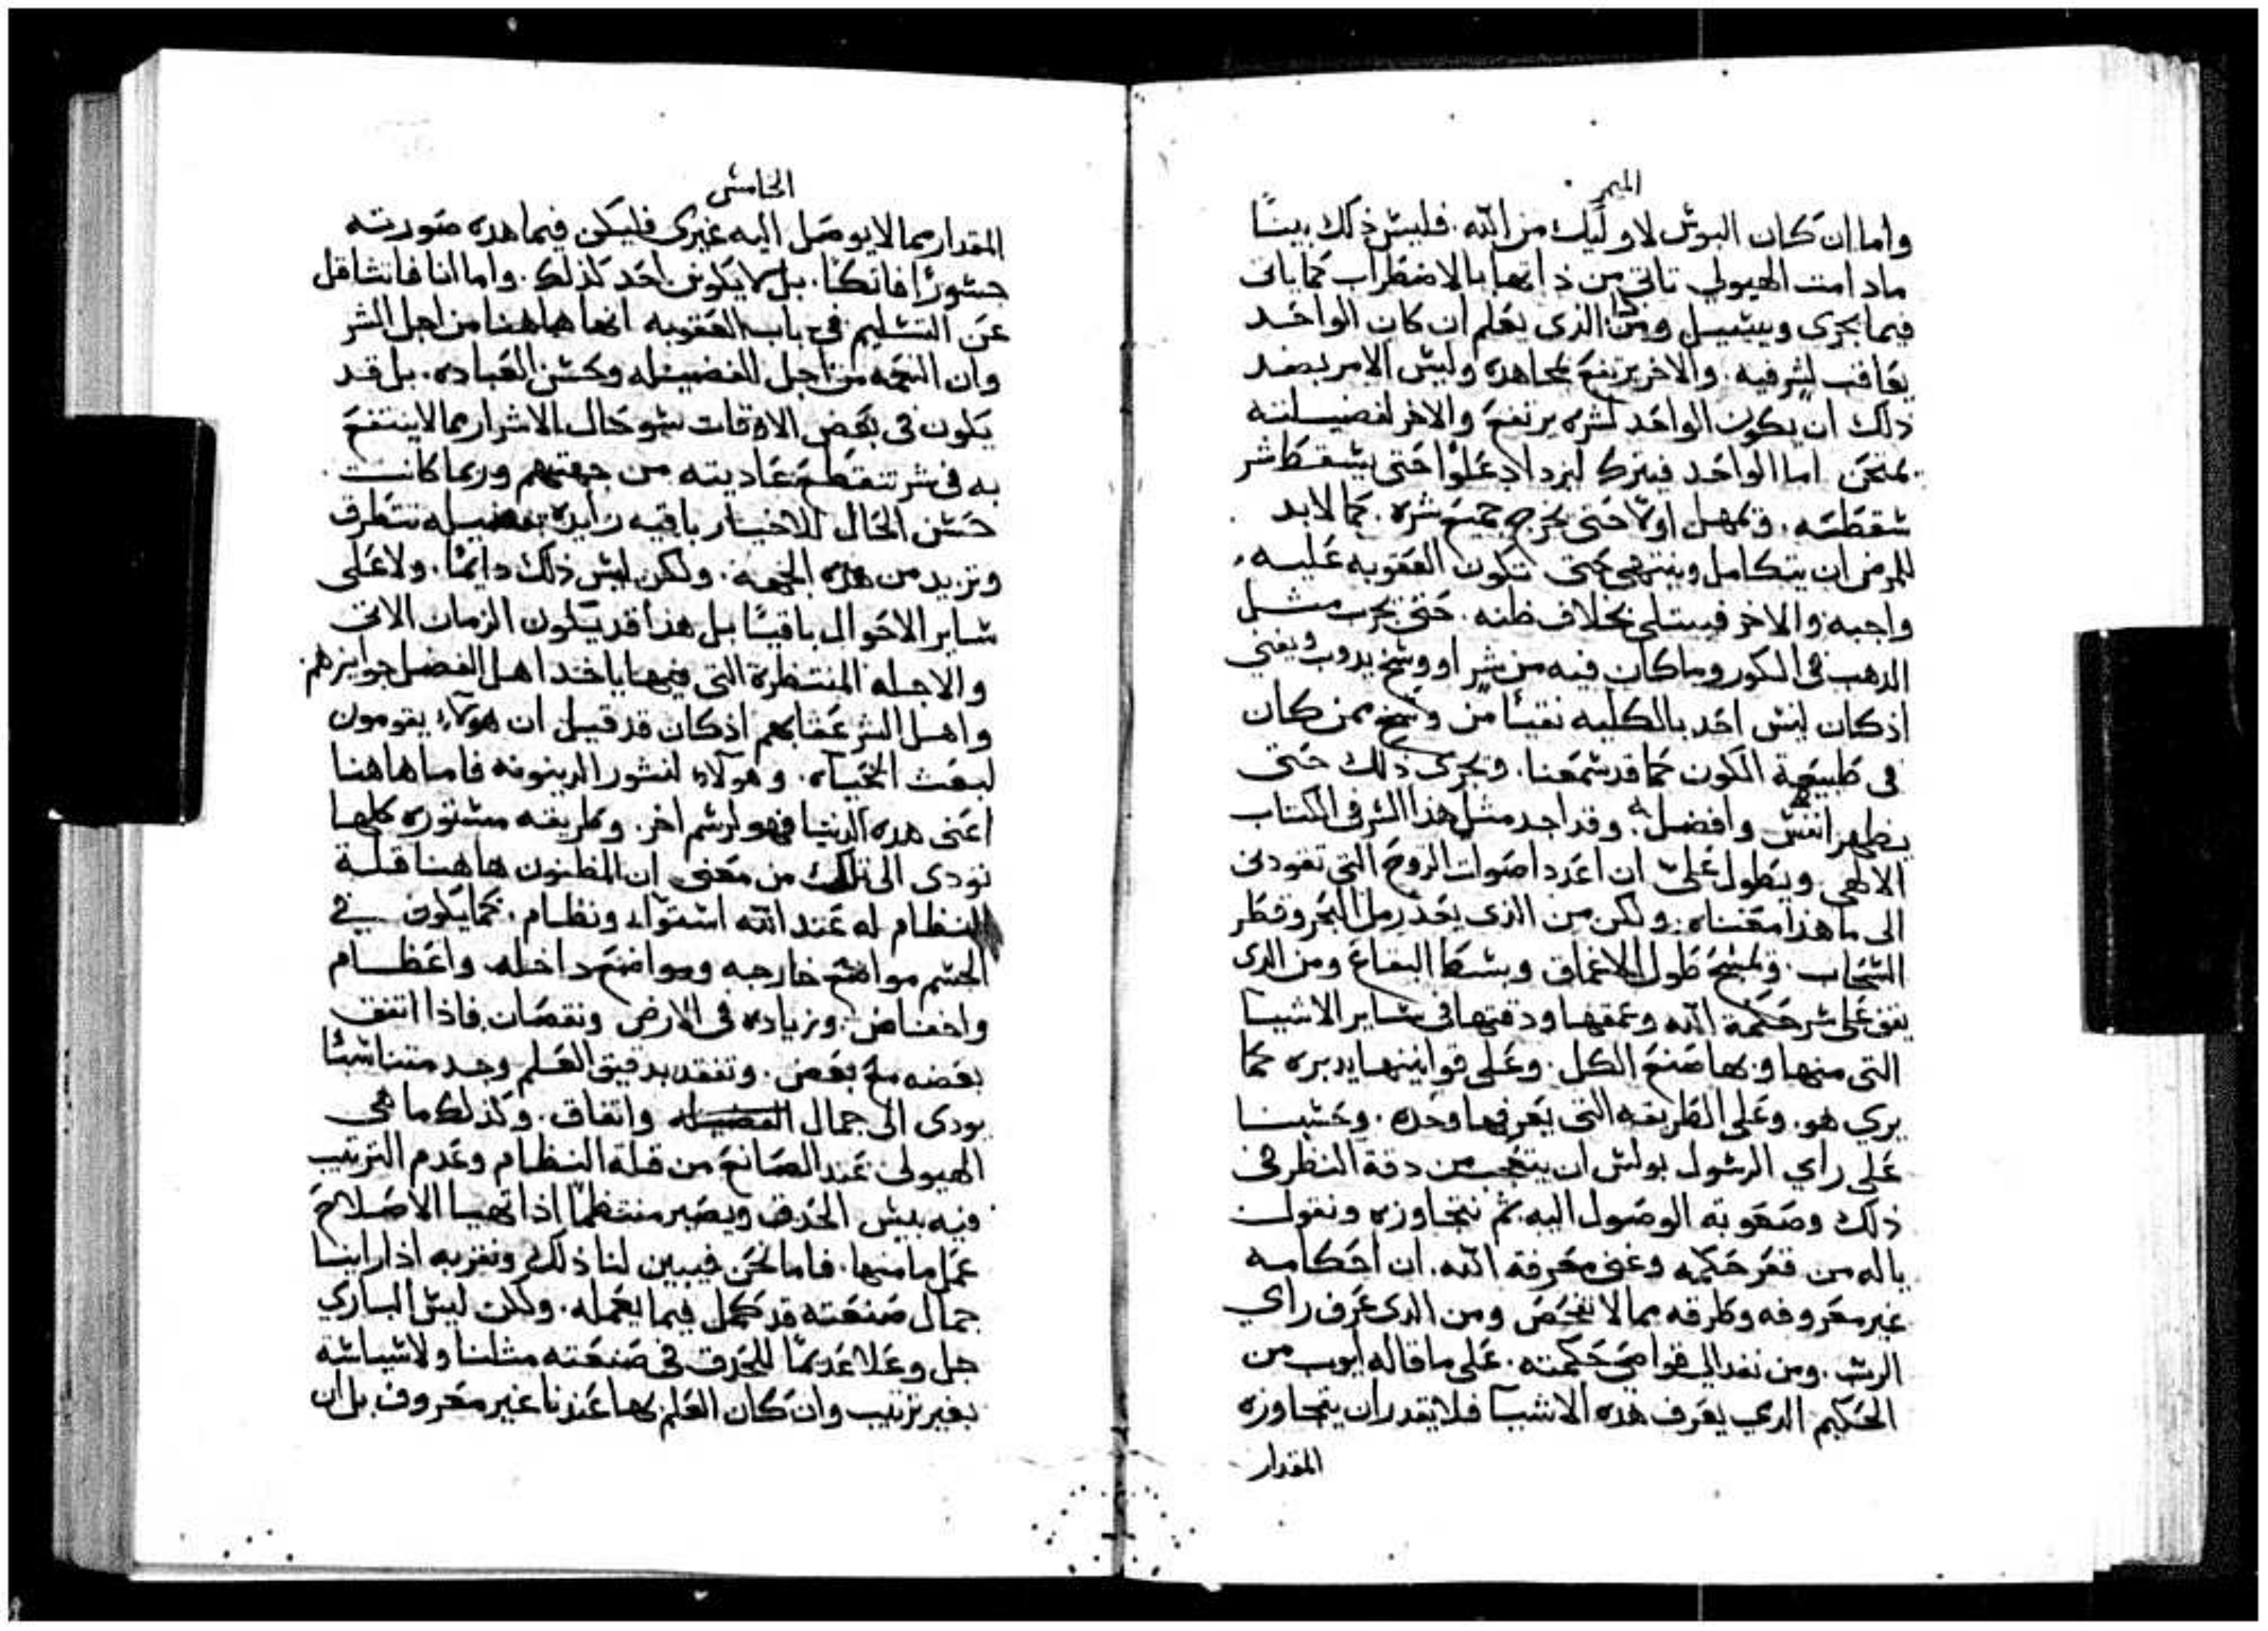 الميمر
واما ان كان البوس لاوليك من الله. فليس ذلك بينًا
مادامت الهيولي تاتي من ذاتها بالاضطراب كما ياتي
فيما يجري ويسيل ومن الذي يعلم ان كان الواحد
يعاقب لشر فيه. والاخر يرتفع لمجاهده وليس الامر بضد
ذلك ان يكون الواحد لشره يرتفع والاخر لفضيلته
يمتحن اما الواحد فيترك ليزداد علوًا حتى يسقط اشر
سقطه. ويمهل اولا حتى يخرج جميع شره. كما لابد
للمرض ان يتكامل وينتهي حتى تكون العقوبه عليه
واجبه والاخر فيبتلي بخلاف ظنه. حتى يجرب مثل
الدهب في الكور وما كان فيه من شر او وسخ يدوب ويفني
اذ كان ليس احد بالكليه نقيًا من وسخ ممن كان
في طبيعة الكون كما قد سمعنا. ويجري ذلك حتى
يظهر انفس وافضل. وقد اجد مثل هذا السر في الكتاب
الالهي ويطول علي ان اعدد اصوات الروح التي تقودني
الى ما هذا معناه. ولكن من الذي يعد رمل البحر وقطر
السحاب. ويمسح طول الاعماق وبسط البقاع ومن الدي
يقف على سر حكمة الله وعمقها ودقتها في ساير الاشيا
التي منها وبها صنع الكل. وعلى قوانينها يدبره كما
يري هو. وعلى الطريقه التي يعرفها وحده. وحسبنا
على راي الرسول بولس ان يتعجب من دقة النظر في
ذلك وصعوبة الوصول اليه ثم نتجاوزه ونقول
ياله من قعر حكمه وغنى معرفة الله. ان احكامه
غير معروفه وطرقه مما لا تفحص ومن الدي عرف راي
الرب. ومن نفد الى قواصي حكمته. على ما قاله ايوب من
الحكيم الدي يعرف هده الاشيا فلا يقدر ان يتجاوزه
المقدار
الخامس
المقدار مما لا يوصل اليه غيري فليكن فيما هده صورته
جسورًا فاتكًا. بل لا يكون احد كذلك. واما انا فاتثاقل
عن التسليم في باب العقوبه انها هاهنا من اجل الشر
وان النجح من اجل الفضيله وحسن العباده. بل قد
يكون في بعض الاوقات سو حال الاشرار مما لا ينتفع
به في شر تنقطع عاديته من جهتهم وربما كانت
حسن الحال للاخيار باقيه زايده بفضيله تتطرق
وتزيد من هذه الجهه. ولكن ليس ذلك دايمًا. ولا على
ساير الاحوال باقيًا بل هذا قد يكون الزمان الاتي
والاجله المنتظرة التي فيها ياخد اهل الفضل جوايزهم
واهل الشر عقابهم اذ كان قد قيل ان هولاء يقومون
لبعث الحياه. وهولاء لنشور الدينونه فاما هاهنا
اعني هده الدنيا فهو لرسم اخر. وطريقه مستوره كلها
تودي الى تلك من معنى ان المظنون هاهنا قلة
النظام له عند الله استواء ونظام. كما يكون في
الجسم مواضع خارجه ومواضع داخله واعظام
وانخفاض. وزياده في الارض ونقصان فاذا اتفق
بعضه مع بعض. وتفقد بدقيق العلم وجد متناسبًا
يودي الى جمال واتفاق. وكذلك ما هي
الهيولى عند الصانع من قلة النظام وعدم الترتيب
فيه بيس الحذق ويصير منتظمًا اذا تهيا الاصلاح
عمل ما منها. فاما نحن فيبين لنا ذلك ونقر به اذا راينا
جمال صنعته قد كمل فيما يعمله. ولكن ليس الباري
جل وعلا عديمًا للحذق في صنعته مثلنا ولا سياسته
بغير ترتيب وان كان العلم بها عندنا غير معروف بل ان